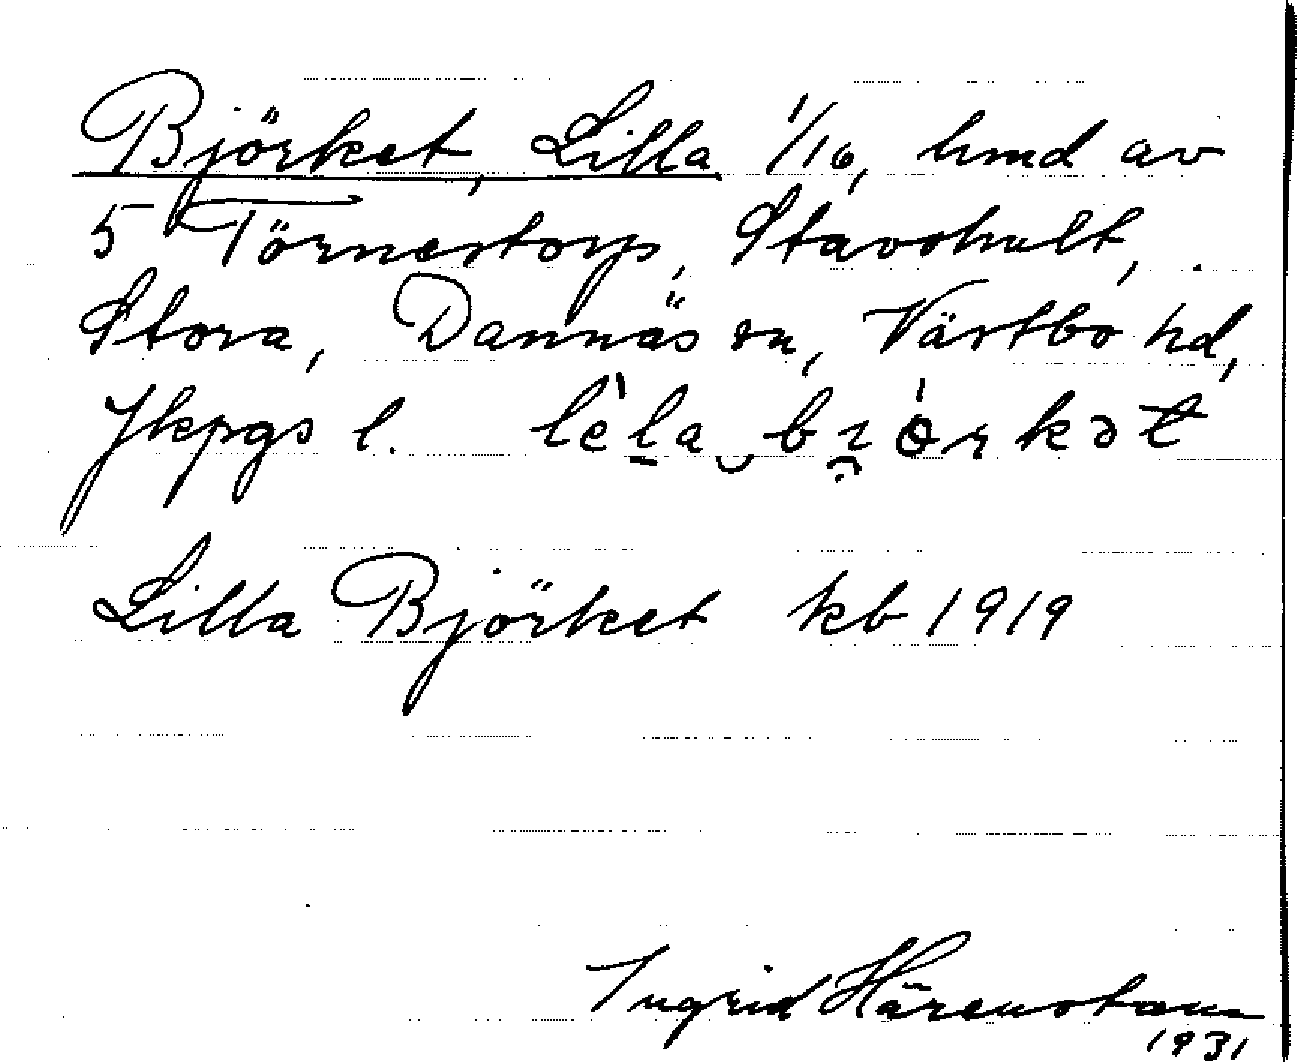 Björket, Lilla 1/16, hmd av
5 Törnestorp, Stavshult,
Stora, Dannäs sn, Västbo hd,
Jkpgs l. lè̱la bıörkət
Lilla Björket kb 1919
Ingrid Härenstam
1931